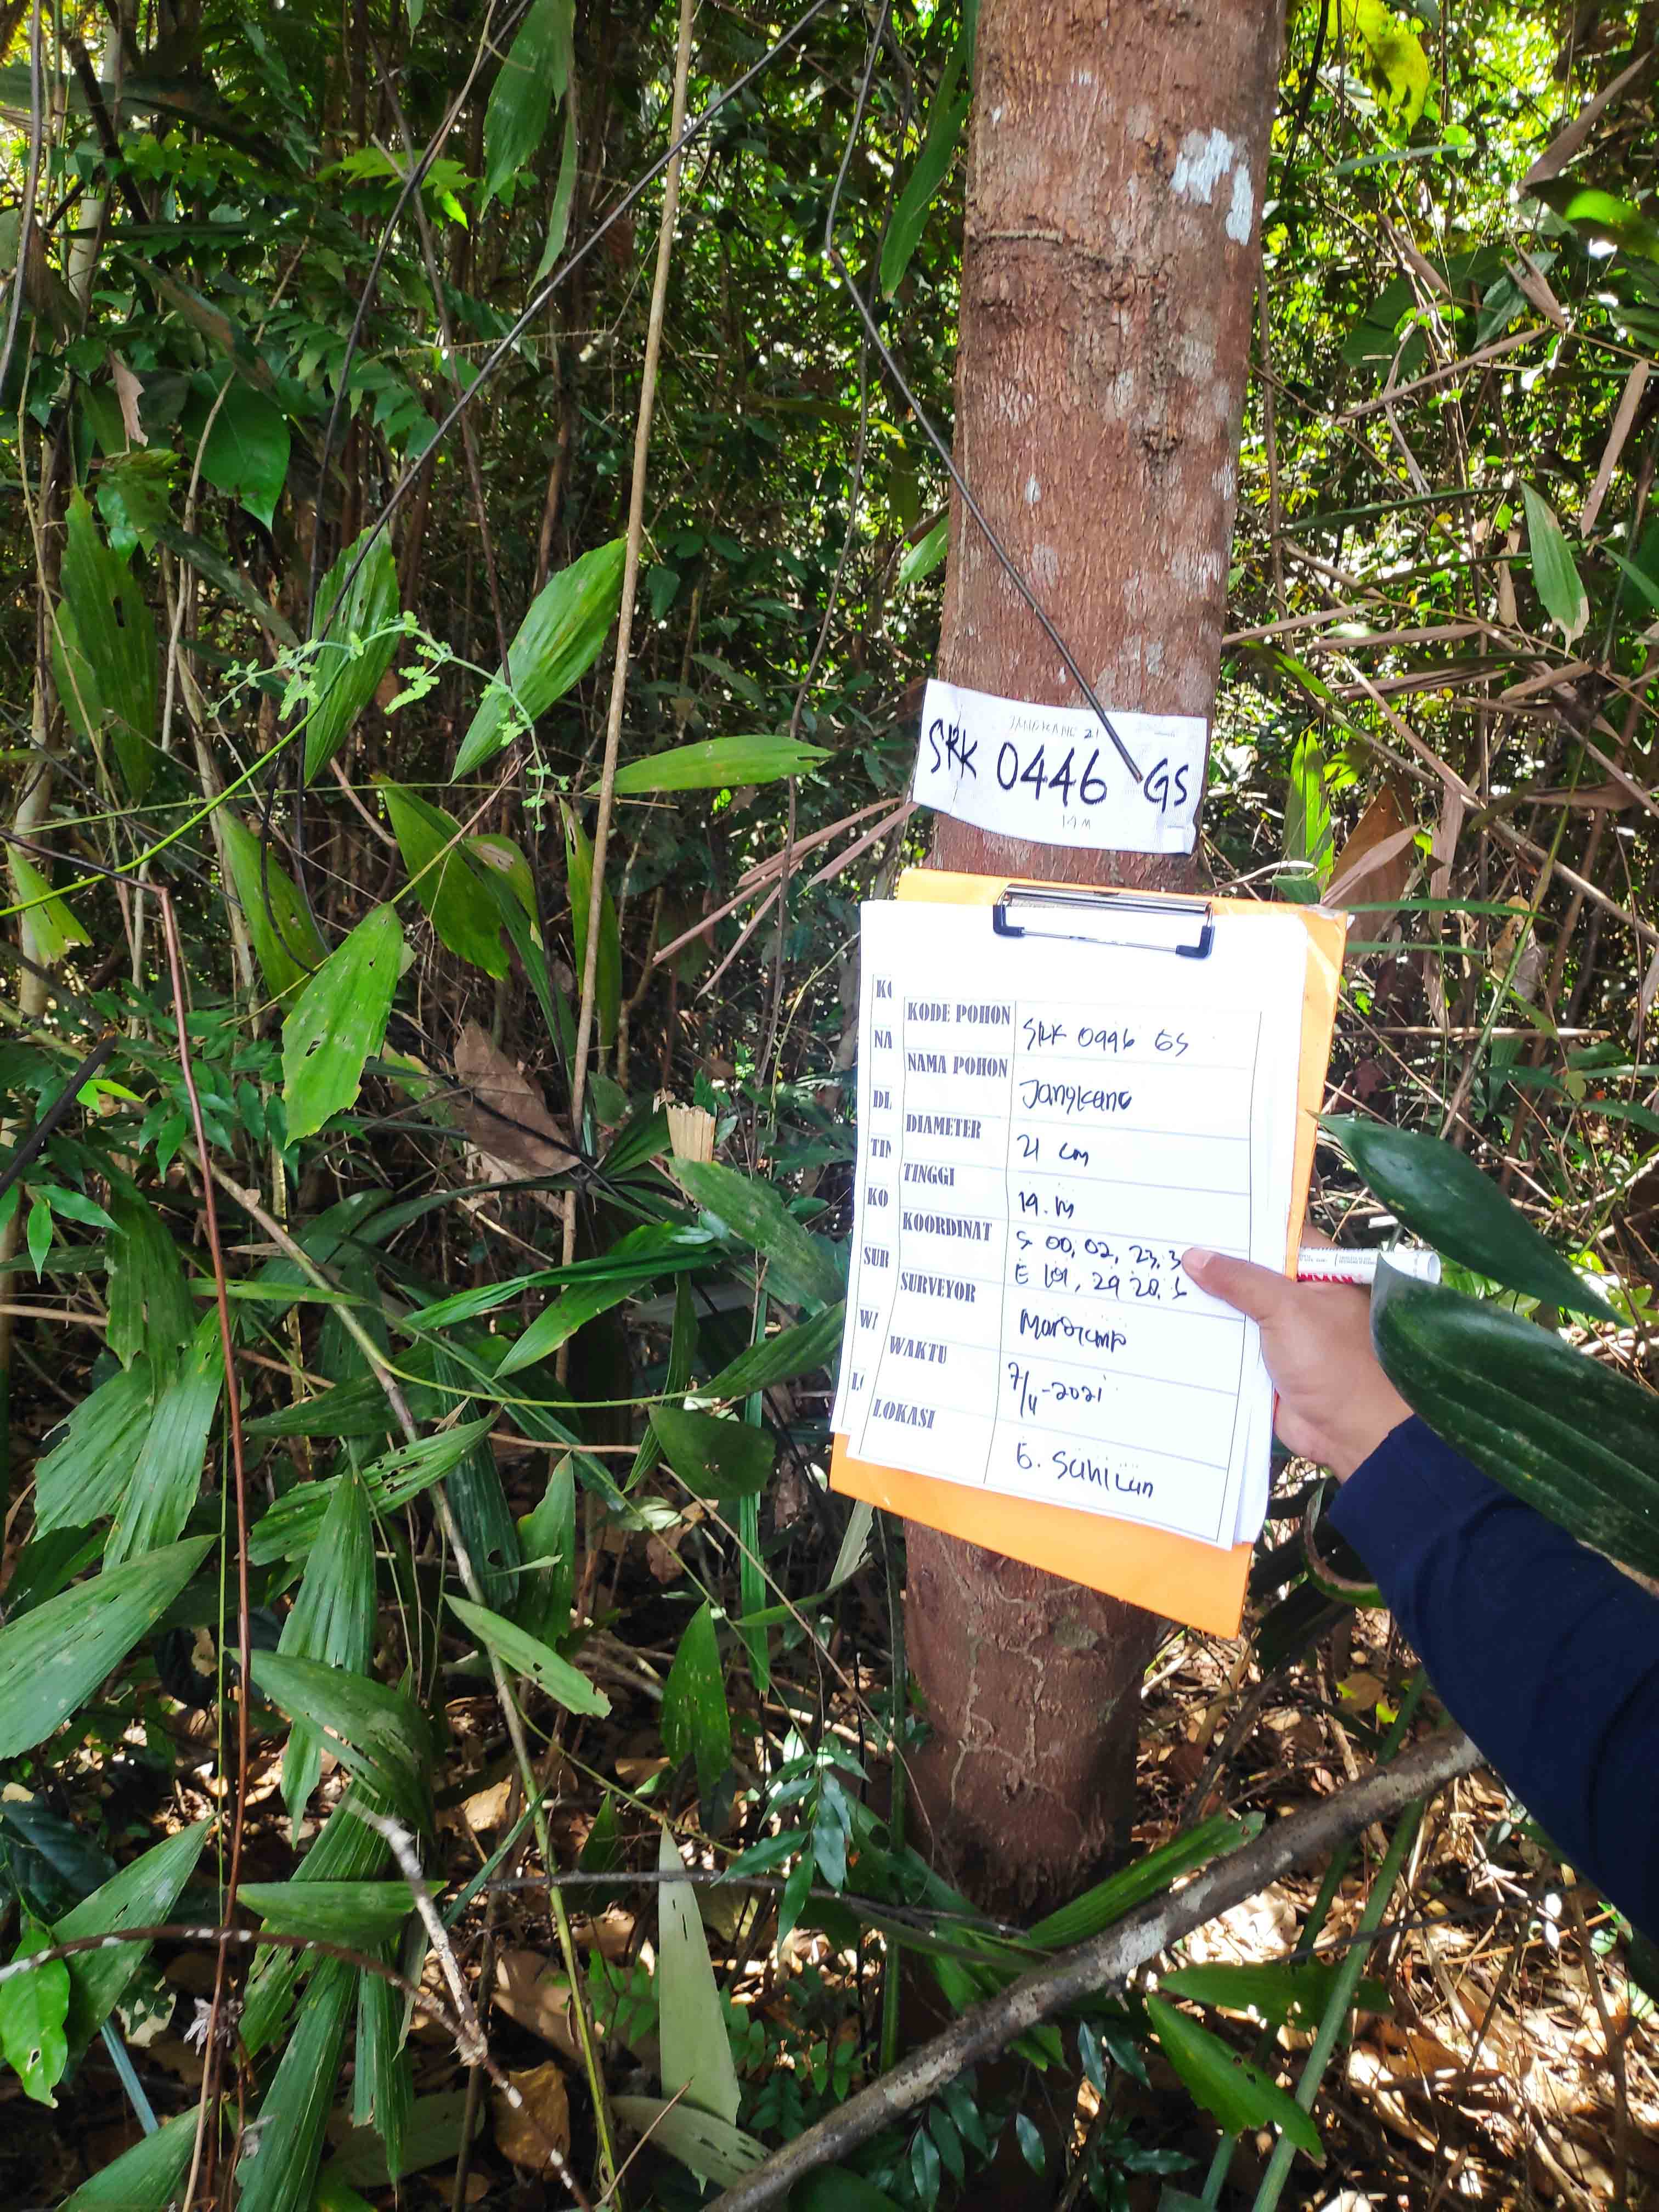 JANGKANG 21
SRK 0446 GS
19 M
KODE POHON SRK 0446 GS
NAMA POHON Jangkang
DIAMETER 21 cm
TINGGI 19. m
KOORDINAT S 00, 02, 23, 3
E 101, 29 20. 5
SURVEYOR
WAKTU 7/4-2021
LOKASI G. Sahilan
KO
NA
DI
TIN
KO
SUR
WA
LO